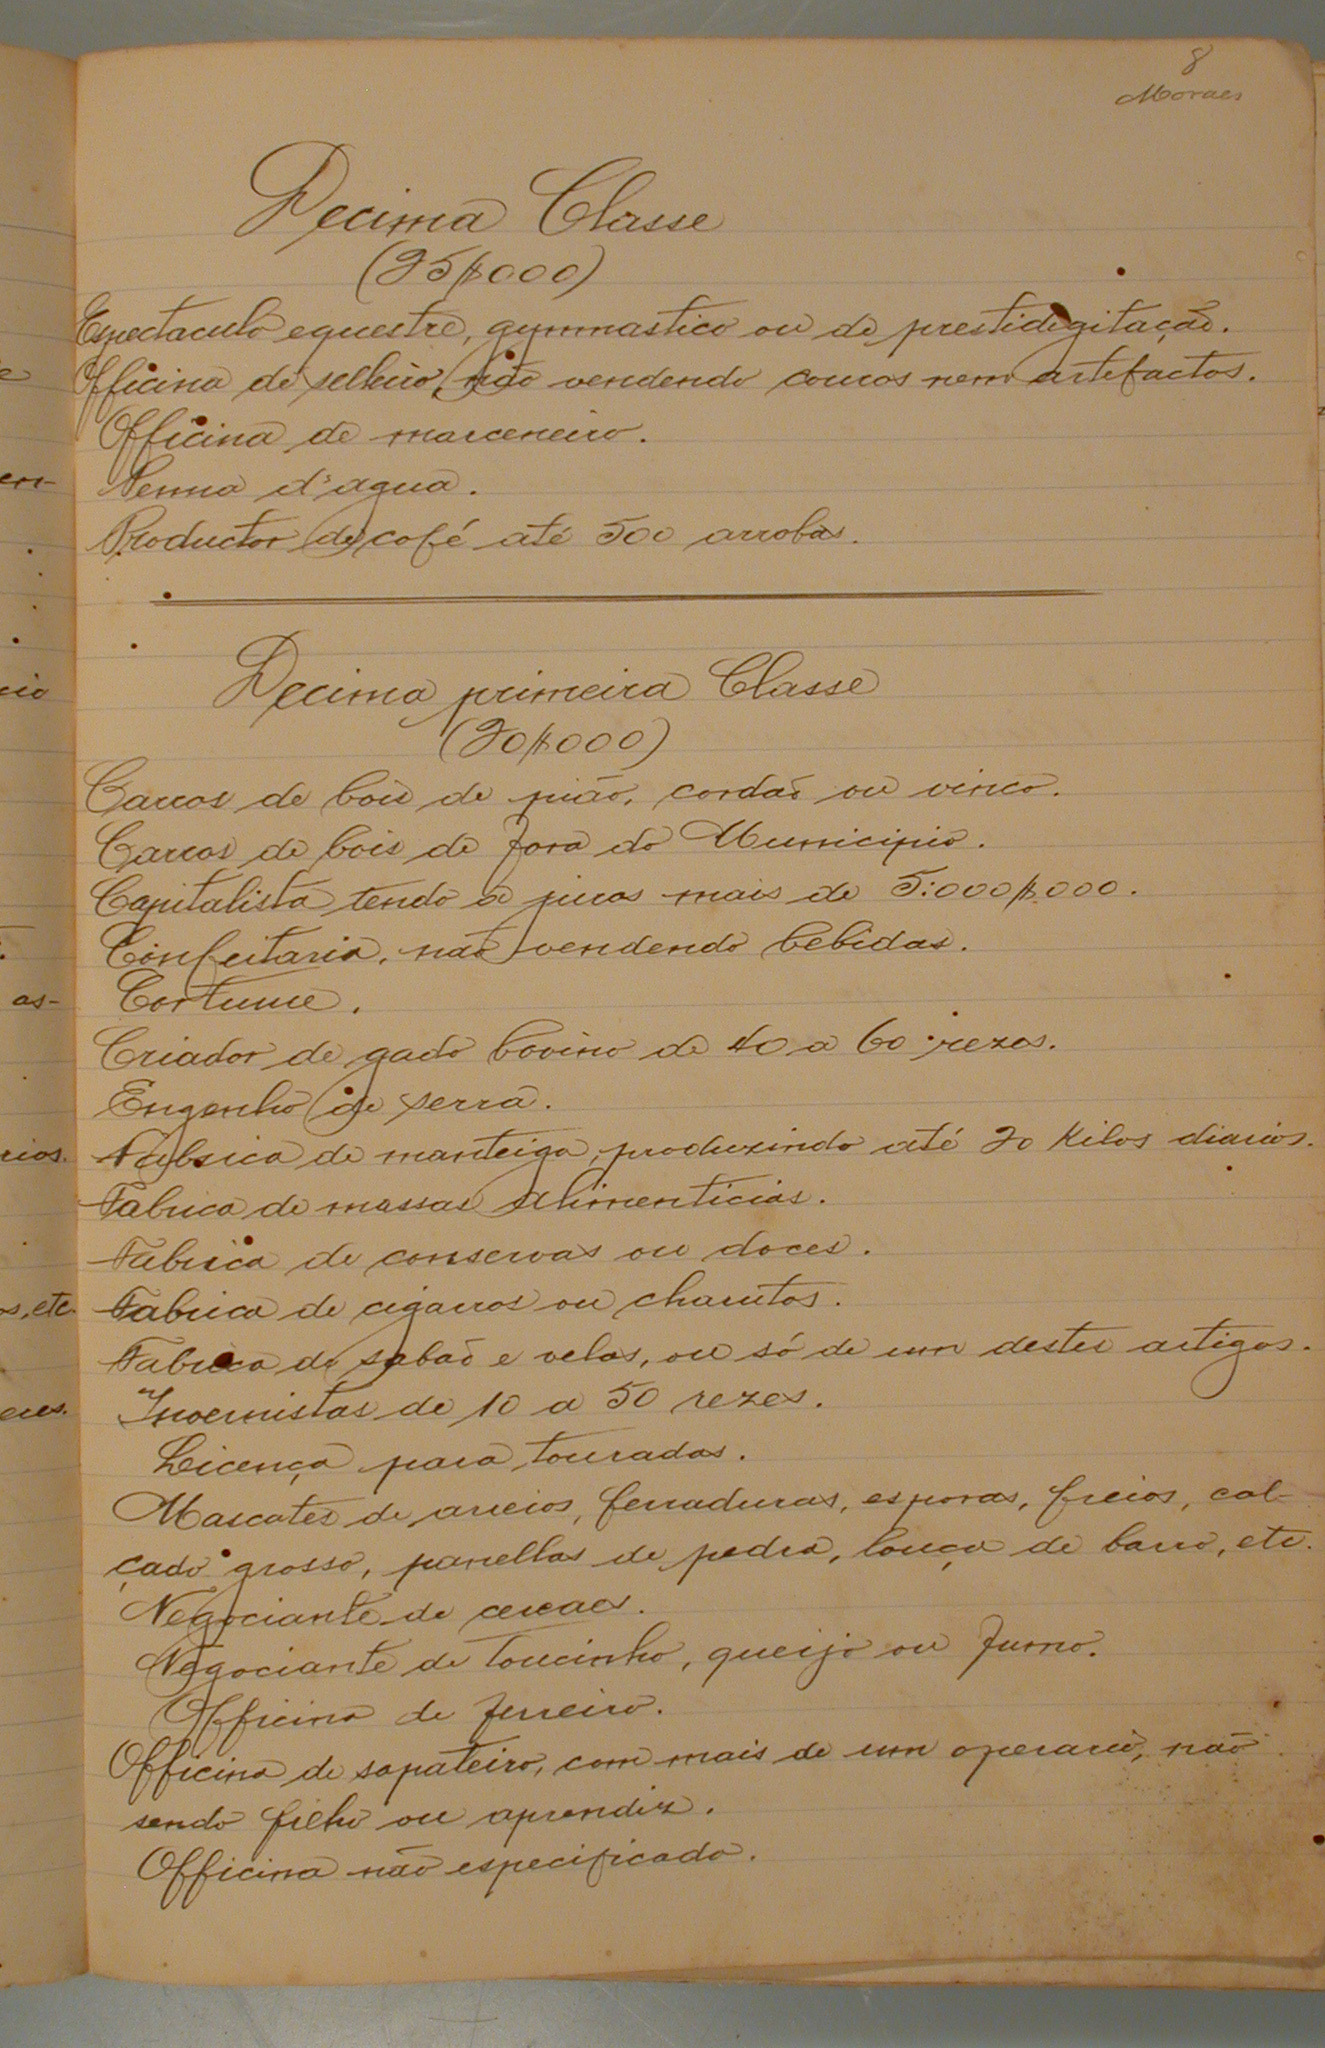 8
Moraes
Decima Classe
(25$000)
Espectaculo equestre, gymnastico ou de prestidigitação.
Officina de selleiro, não vendendo couros nem artefactos.
Officina de marceneiro.
Penna d'agua.
Productor de café até 500 arrobas.
Decima primeira Classe
(20$000)
Carros de bois de pião, cordão ou vinco.
Carros de bois de fora do Municipio.
Capitalista tendo a juros mais de 5:000$000.
Confeitaria, não vendendo bebidas.
Cortume.
Criador de gado bovino de 40 a 60 rezes.
Engenho de serra.
Fabrica de manteiga, produzindo até 20 kilos diarios.
Fabrica de massas alimenticias.
Fabrica de conservas ou doces.
Fabrica de cigarros ou charutos.
Fabrica de sabão e velas, ou só de um destes artigos.
Invernistas de 10 a 50 rezes.
Licença para touradas.
Mascates de arreios, ferraduras, esporas, freios, cal-
çado grosso, panellas de pedra, louça de barro, etc.
Negociante de cereaes.
Negociante de toucinho, queijo ou fumo.
Officina de ferreiro.
Officina de sapateiro, com mais de um operario, não
sendo filho ou aprendiz.
Officina não especificada.
en-
cio
as-
rios.
os, etc.
eres.